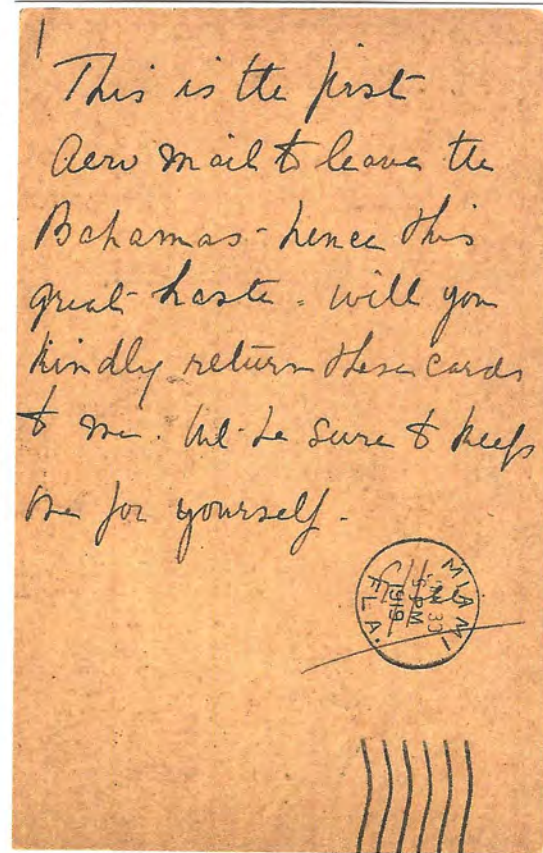 1
This is the first
Aero Mail to leave the
Bahamas - hence this
great haste. will you
kindly return these cards
to me. but be sure to keep
one for yourself.
MIAMI
30
5 PM
1919
FLA.